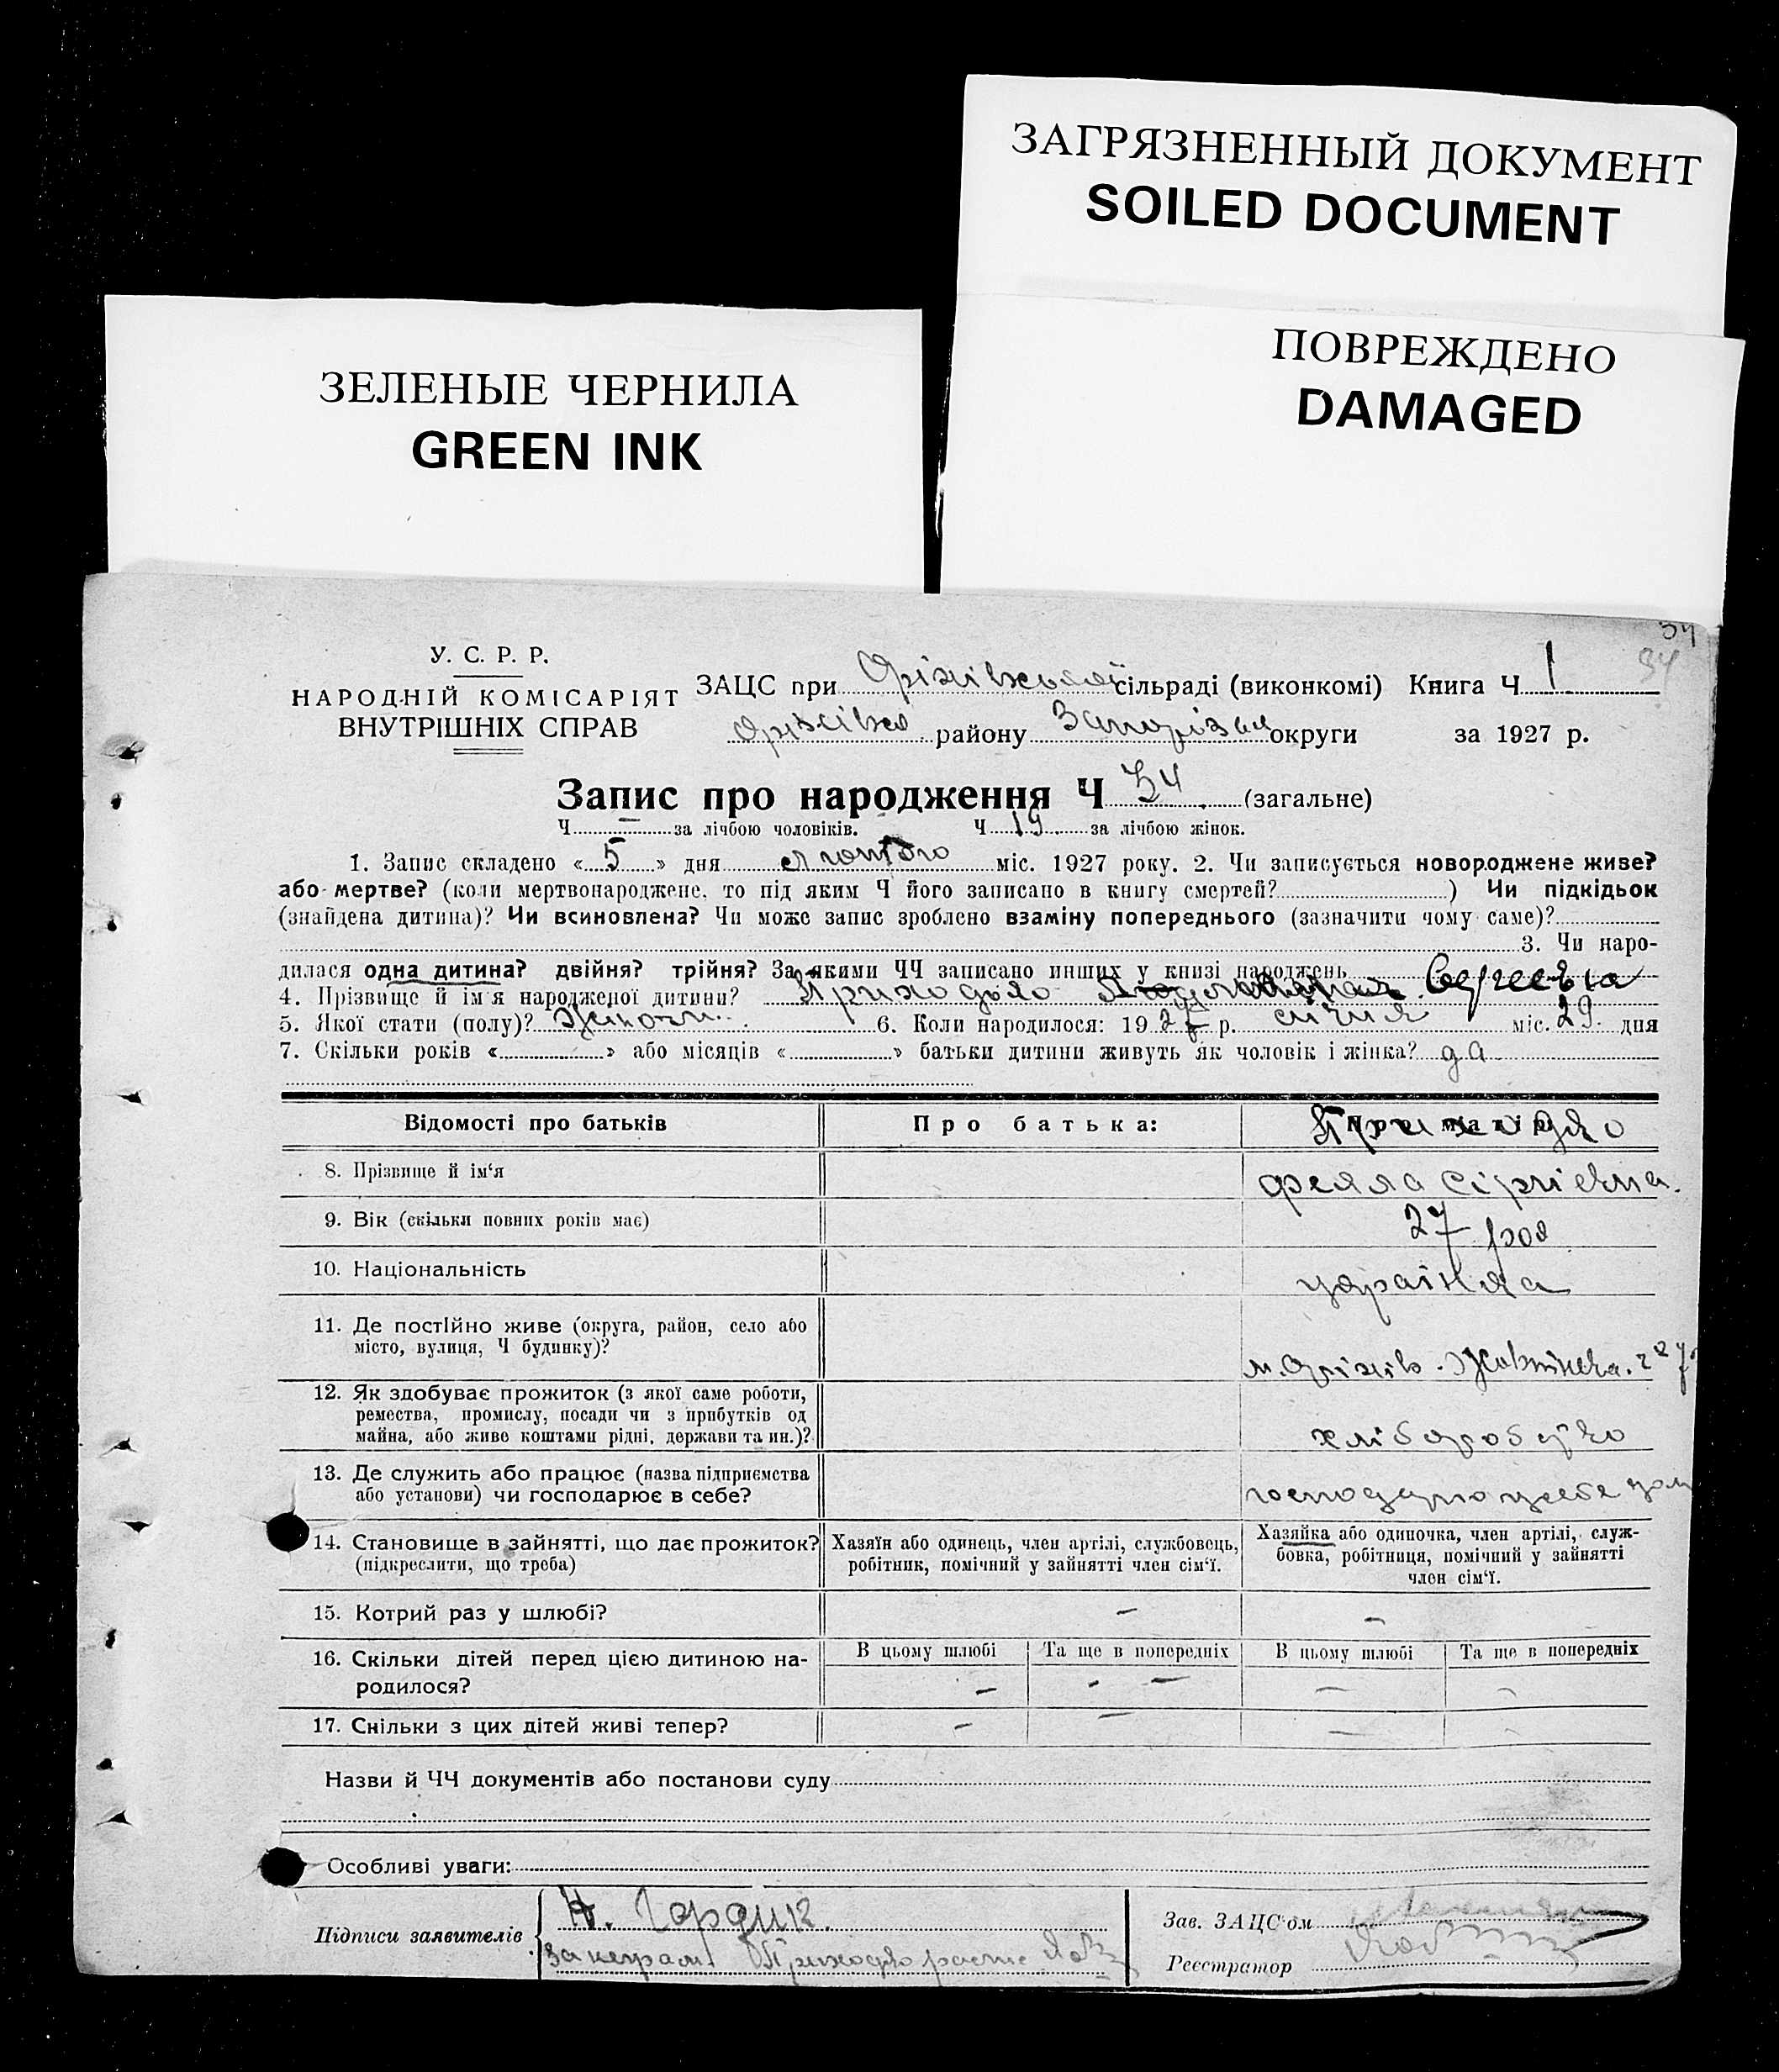 ЗАГРЯЗНЕННЫЙ ДОКУМЕНТ
SOILED DOCUMENT
ПОВРЕЖДЕНО
DAMAGED
ЗЕЛЕНЫЕ ЧЕРНИЛА
GREEN INK
34
34
У. С. Р. Р.
НАРОДНІЙ КОМІСАРІЯТ
ВНУТРІШНІХ СПРАВ
ЗАЦС при Оріхівській сільраді (виконкомі) Книга Ч 1
Оріхівсь району Запорізьк округи за 1927 р.
Запис про народження Ч 34 (загальне)
Ч — за лічбою чоловіків. Ч 19 за лічбою жінок.
1. Запис складено «5» дня лютого міс. 1927 року. 2. Чи записується новороджене живе?
або мертве? (коли мертвонароджене, то під яким Ч його записано в книгу смертей? ) Чи підкідьок
(знайдена дитина)? Чи всиновлена? Чи може запис зроблено взаміну попереднього (зазначити чому саме)?
3. Чи наро-
дилася одна дитина? двійня? трійня? За якими ЧЧ записано инших у книзі народжень
4. Прізвище й ім'я народженої дитини? Приходько
5. Якої стати (полу)? Жіночи 6. Коли народилося: 1927 р. січня міс. 29 дня
7. Скільки років « » або місяців « » батьки дитини живуть як чоловік і жінка? да
Відомості про батьків
Про батька:
Про матір:
Приходько
8. Прізвище й ім'я
Фекла Сіргіевна.
9. Вік (скільки повних років має)
27 рок
10. Національність
українка
11. Де постійно живе (округа, район, село або
місто, вулиця, Ч будинку)?
м. Оріхів. Жовтнева.
12. Як здобуває прожиток (з якої саме роботи,
ремества, промислу, посади чи з прибутків од
майна, або живе коштами рідні, держави та ин.)?
хліборобсько
13. Де служить або працює (назва підприємства
або установи) чи господарює в себе?
14. Становище в зайнятті, що дає прожиток?
(підкреслити, що треба)
Хазяїн або одинець, член артілі, службовець,
робітник, помічний у зайнятті член сім'ї.
Хазяйка або одиночка, член артілі, служ-
бовка, робітниця, помічний у зайнятті
член сім'ї.
15. Котрий раз у шлюбі?
— —
16. Скільки дітей перед цією дитиною на-
родилося?
В цьому шлюбі Та ще в попередніх В цьому шлюбі Та ще в попередніх
— - — — —
17. Скільки з цих дітей живі тепер?
— — — -
Назви й ЧЧ документів або постанови суду
Особливі уваги:
Підписи заявителів
Н. Гордик.
за неграм Приходько
Зав. ЗАЦС'ом
Реєстратор